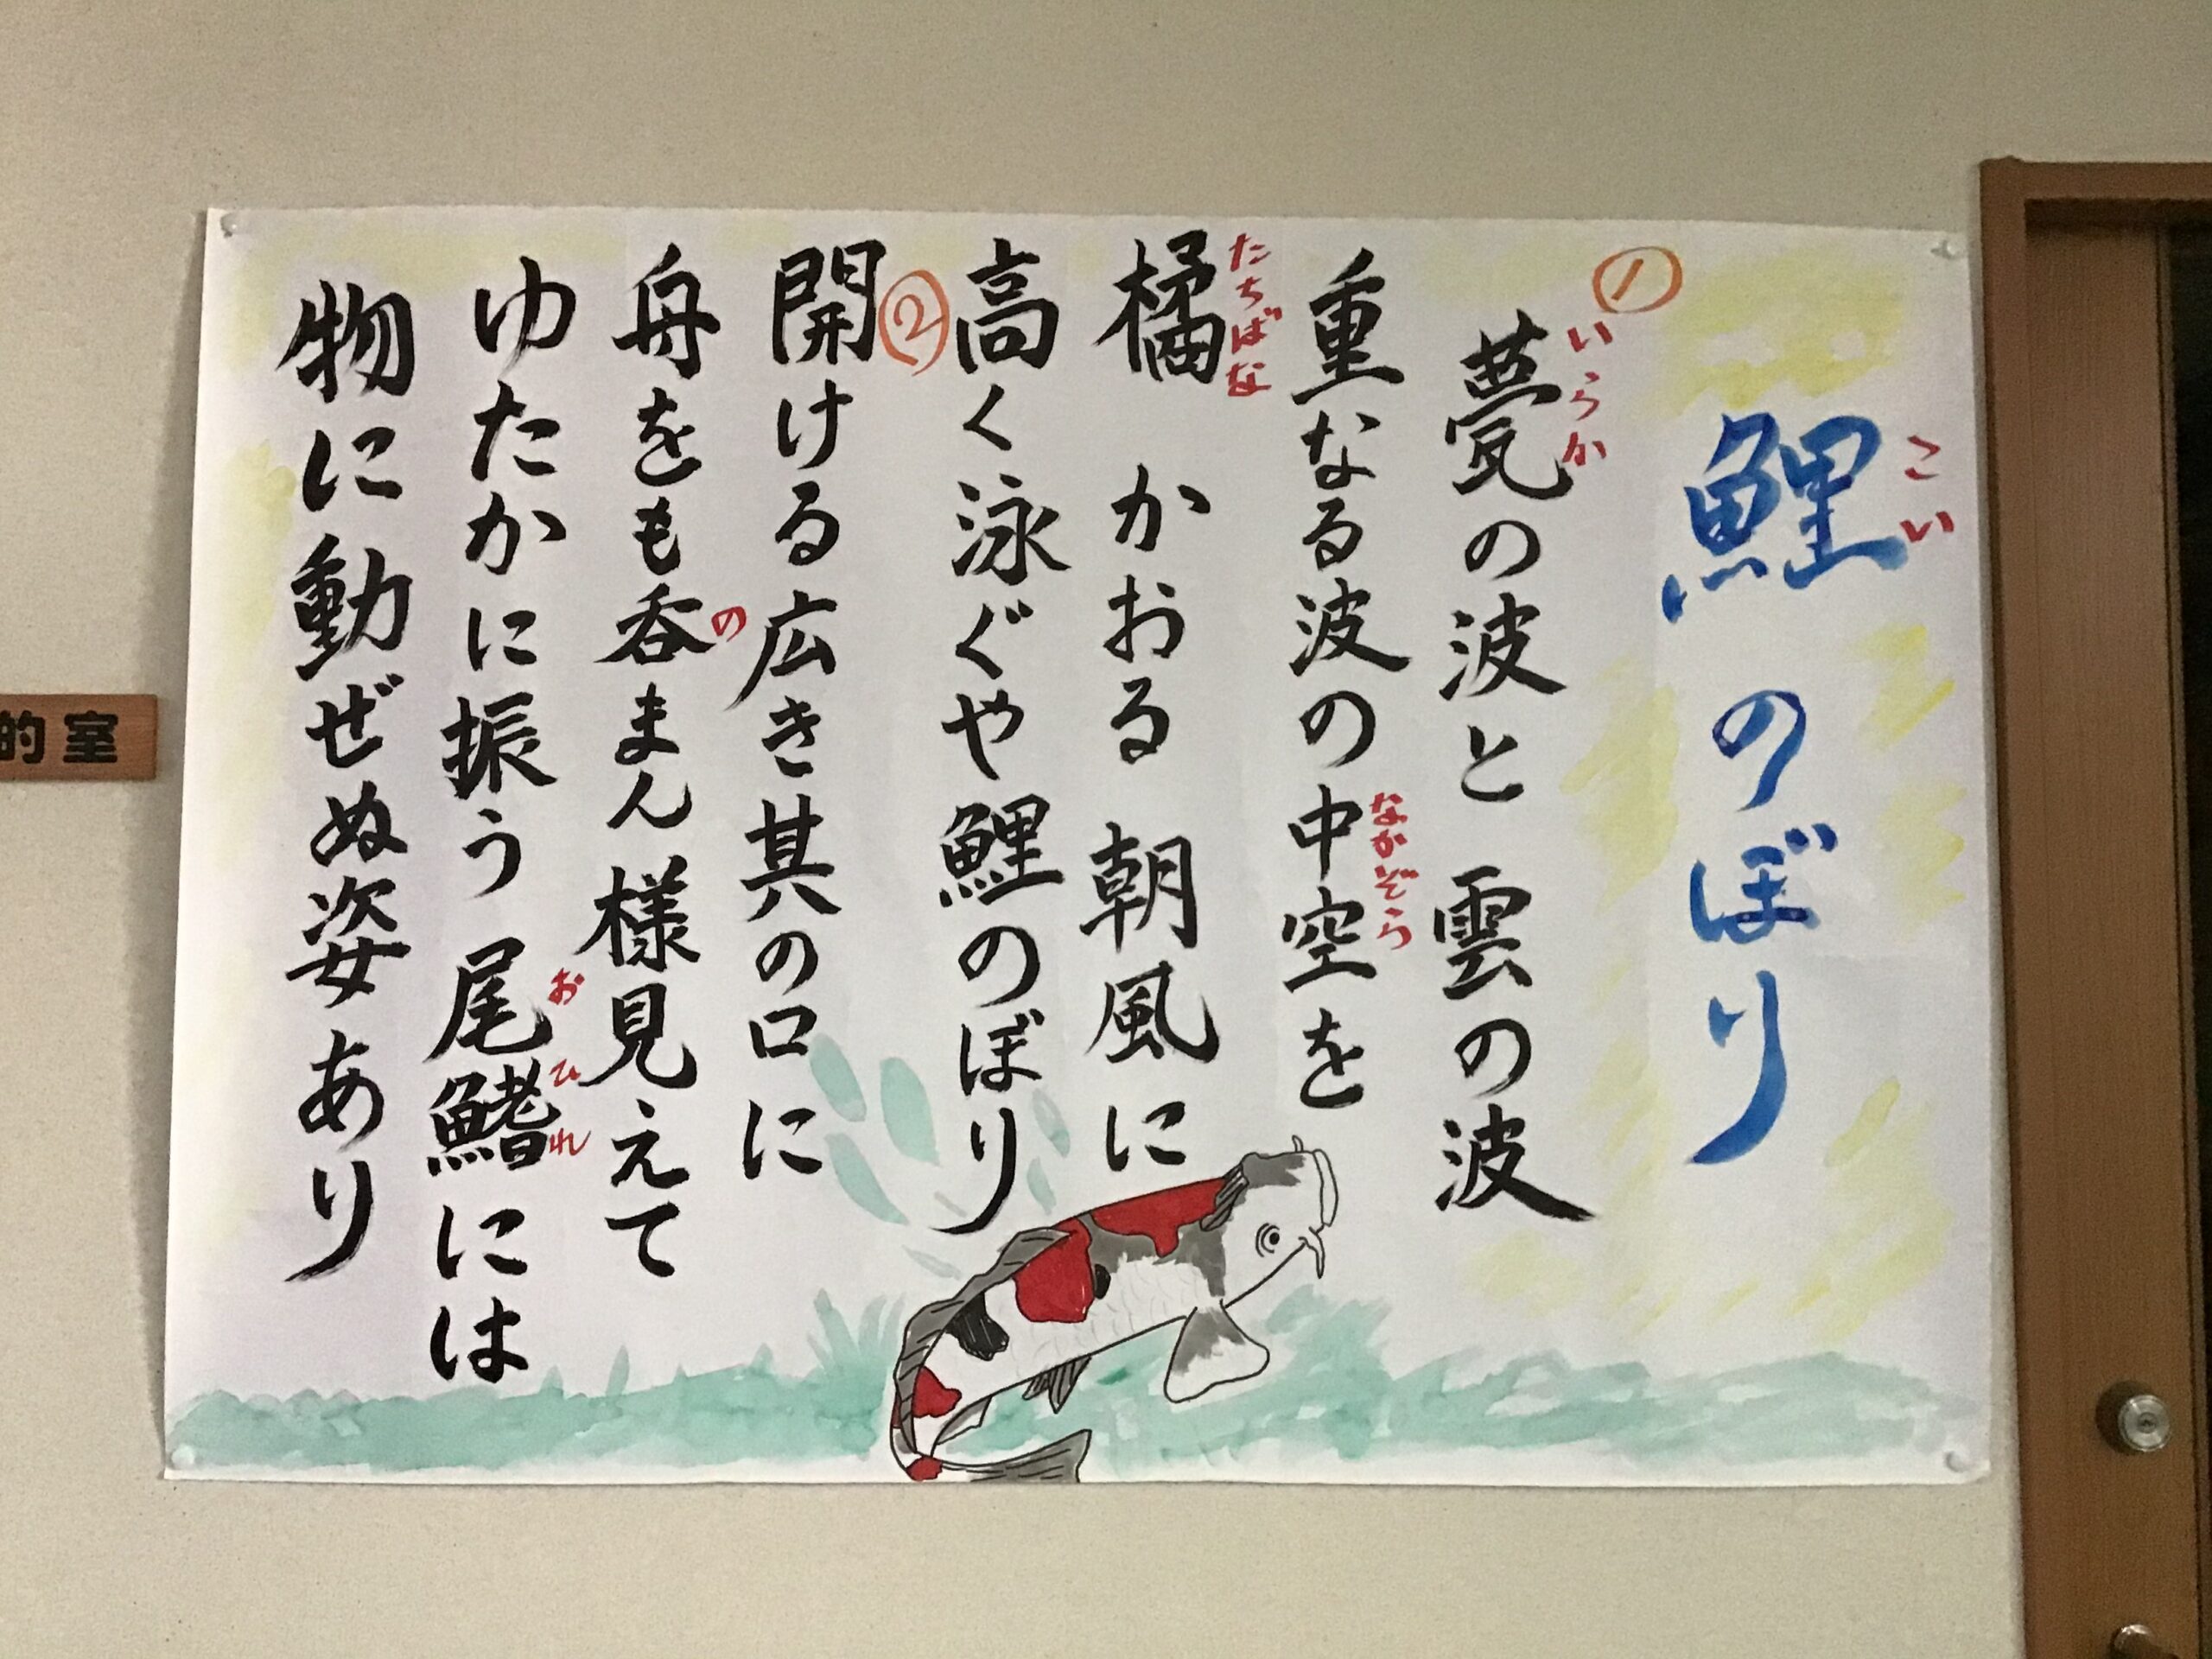 鯉のぼり
こい
①
甍の波と雲の波
いらか
重なる波の中空を
なかぞら
橘かおる朝風に
たちばな
高く泳ぐや鯉のぼり
②
開ける広き其の口に
舟をも呑まん様見えて
の
ゆたかに振う尾鰭には
おひれ
物に動ぜぬ姿あり
的室